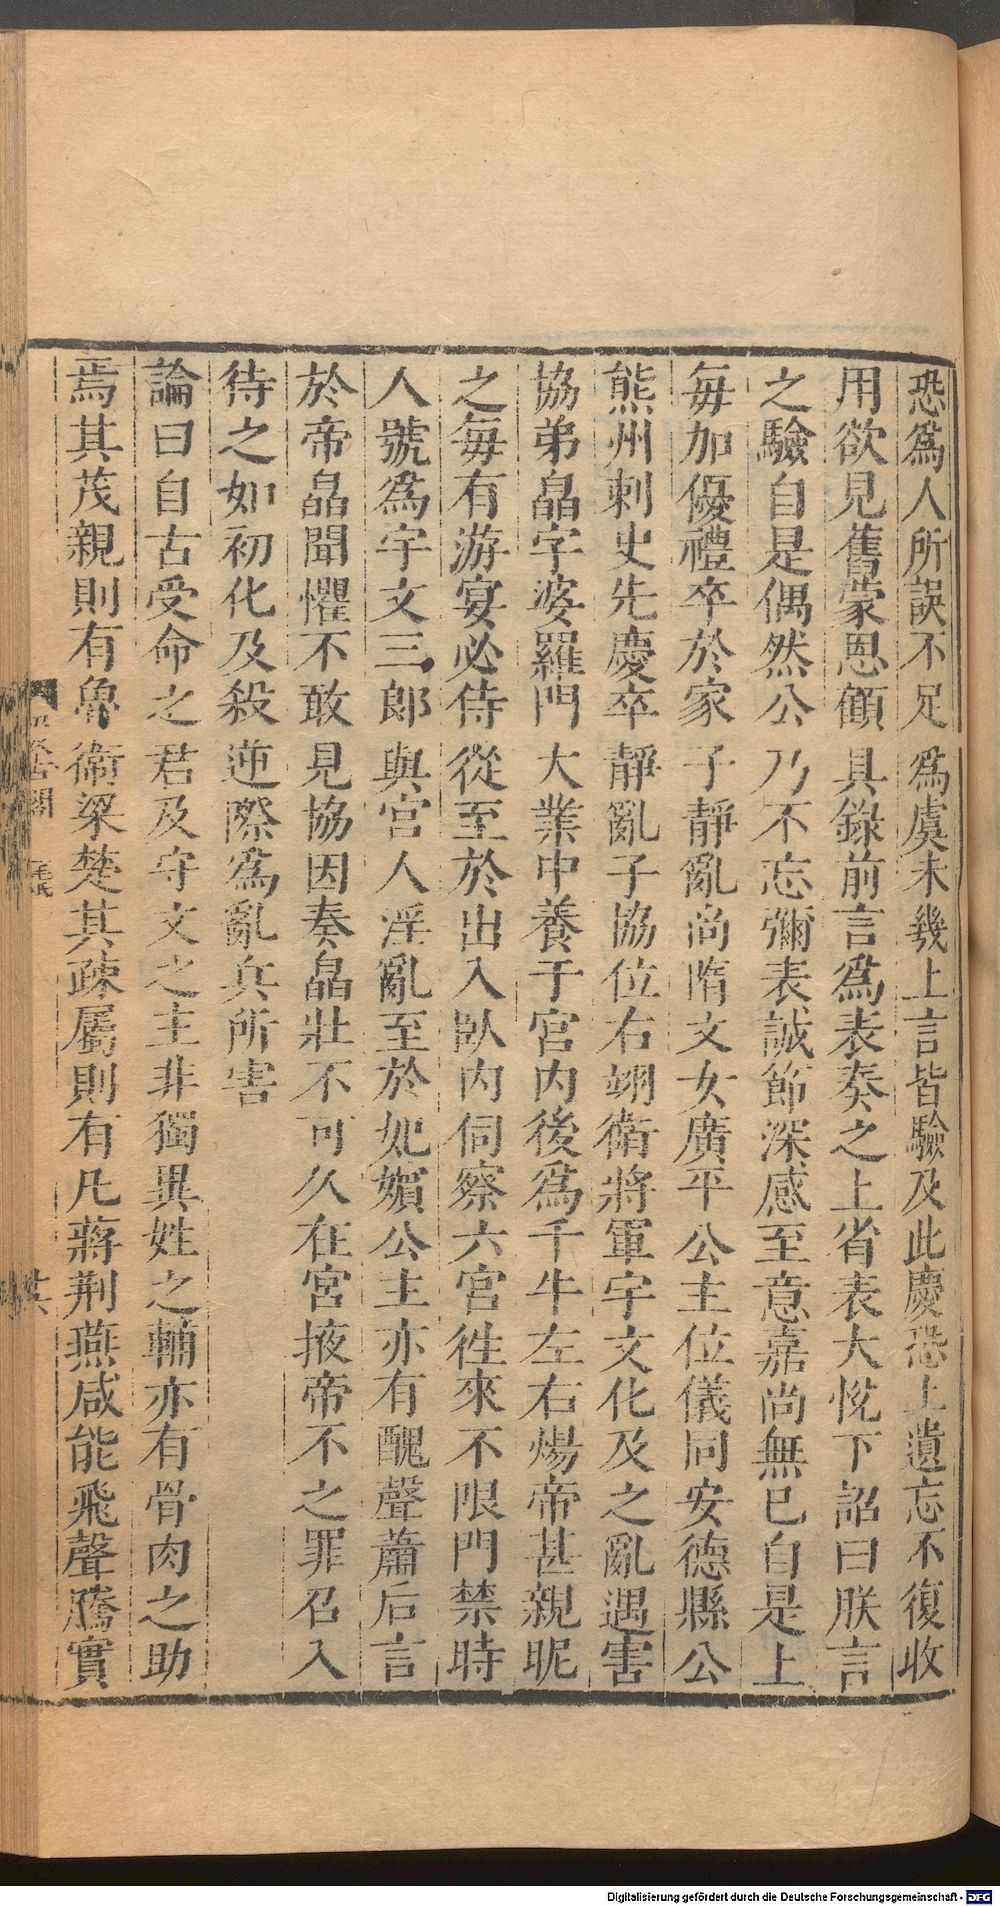 恐爲人所誤不足爲虞未幾上言皆驗及此慶恐上遺忘不復收
用欲見舊蒙恩顧具錄前言爲表奏之上省表大悅下詔曰朕言
之驗自是偶然公乃不忘彌表誠節深感至意嘉尚無已自是上
每加優禮卒於家子靜亂尚隋文女廣平公主位儀同安德縣公
熊州刺史先慶卒靜亂子協位右翊衛將軍宇文化及之亂遇害
協弟皛字婆羅門大業中養于宮内後爲千牛左右煬帝甚親昵
之每有游宴必侍從至於出入臥内伺察六宮徃來不限門禁時
人號爲宇文三郎與宮人淫亂至於妃嬪公主亦有醜聲蕭后言
於帝皛聞懼不敢見協因奏皛壯不可久在宮掖帝不之罪召入
待之如初化及殺逆際爲亂兵所害
論曰自古受命之君及守文之主非獨異姓之輔亦有骨肉之助
焉其茂親則有魯衛梁楚其疎屬則有凡蔣荆燕咸能飛聲騰實
Digitalisierung gefördert durch die Deutsche Forschungsgemeinschaft - DFG